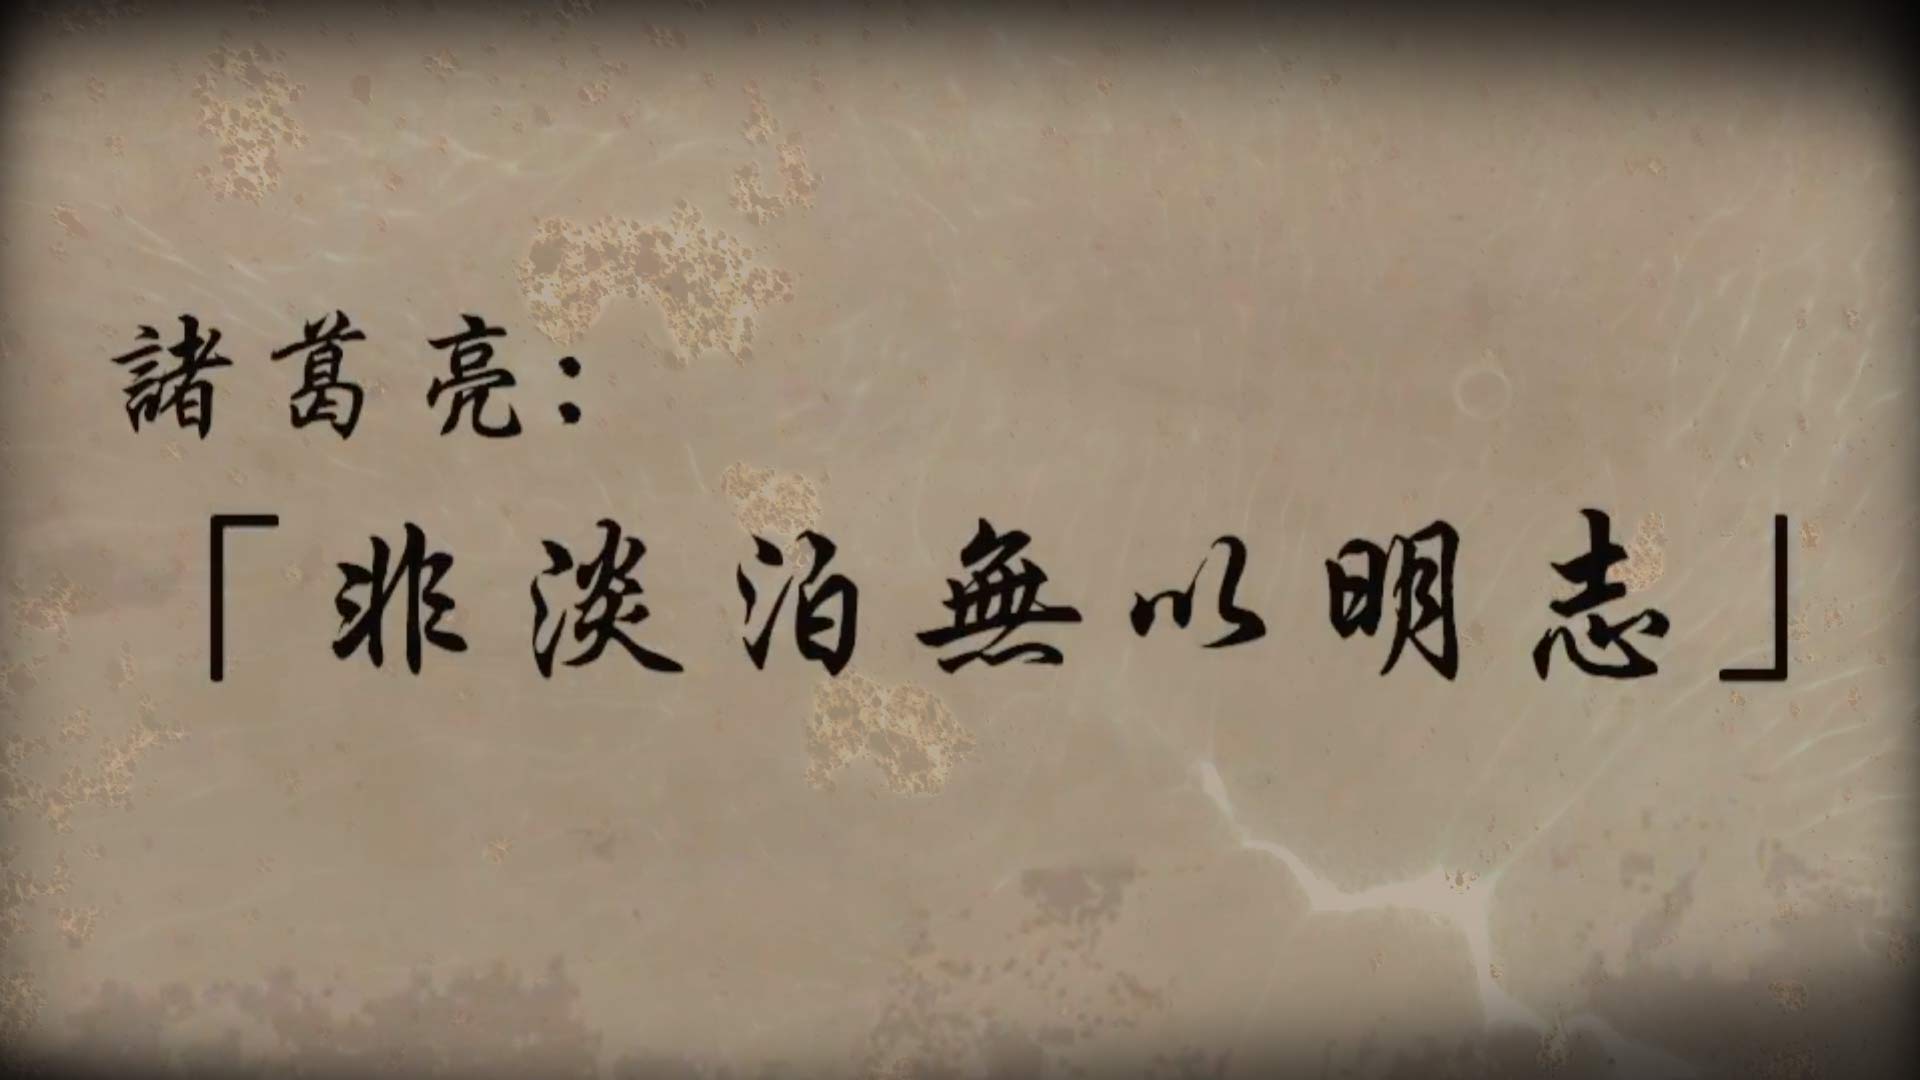 諸葛亮：
「非淡泊無以明志」